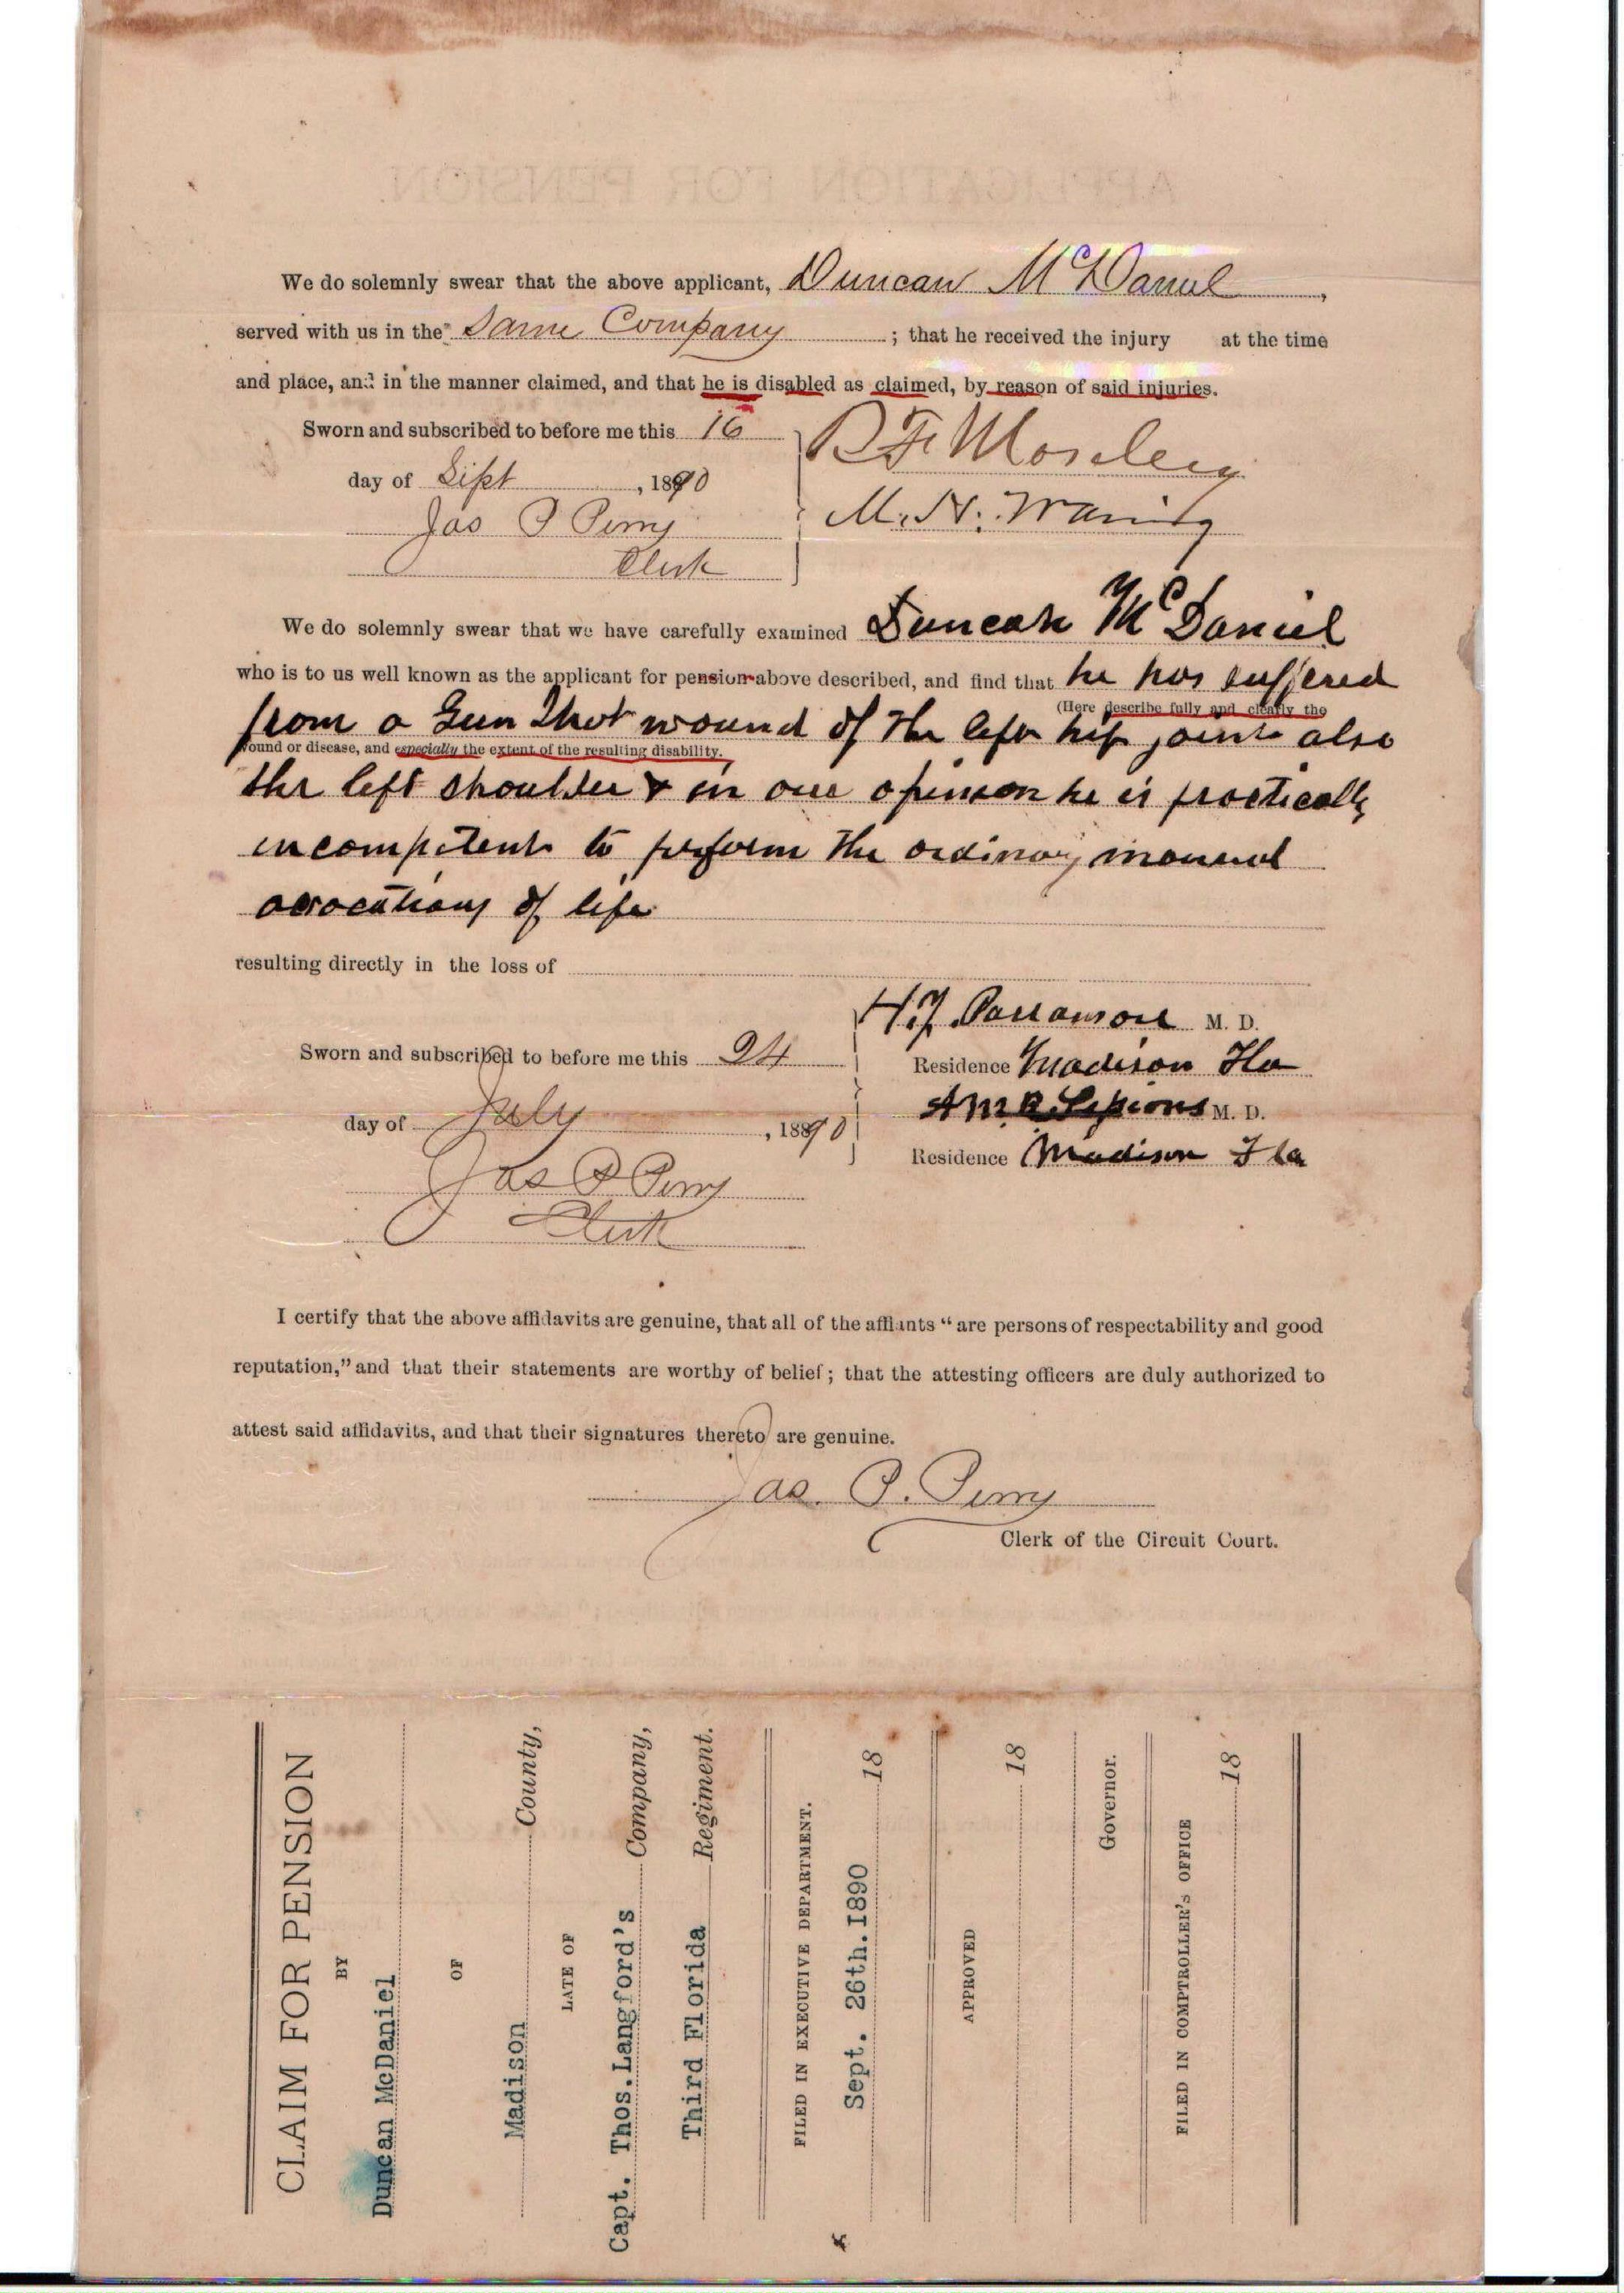 We do solemnly swear that the above applicant, Duncan McDaniel,
served with us in the Same Company ; that he received the injury at the time
and place, and in the manner claimed, and that he is disabled as claimed, by reason of said injuries.
Sworn and subscribed to before me this 16
day of Sept, 1890
Jas P Perry
Clerk
R F Moseley
M. N. Waring
We do solemnly swear that we have carefully examined Duncan McDaniel
who is to us well known as the applicant for pension above described, and find that he has suffered
(Here describe fully and clearly the
from a Gun Shot wound of the left hip joint also
wound or disease, and especially the extent of the resulting disability.
the left shoulder & in our opinion he is practically
incompetent to perform the ordinary manual
avocations of life
resulting directly in the loss of
Sworn and subscribed to before me this 24
day of July, 1890
Jas P Perry
Clerk
H.J. Parramore M. D.
Residence Madison Fla
M. D.
Residence Madison Fla
I certify that the above affidavits are genuine, that all of the affiants "are persons of respectability and good
reputation," and that their statements are worthy of belief; that the attesting officers are duly authorized to
attest said affidavits, and that their signatures thereto are genuine.
Jas. P. Perry
Clerk of the Circuit Court.
CLAIM FOR PENSION
BY
Duncan McDaniel
OF
Madison County,
LATE OF
Capt. Thos.Langford's Company,
Third Florida Regiment.
FILED IN EXECUTIVE DEPARTMENT.
Sept. 26th.1890 18
APPROVED
18
Governor.
FILED IN COMPTROLLER'S OFFICE
18